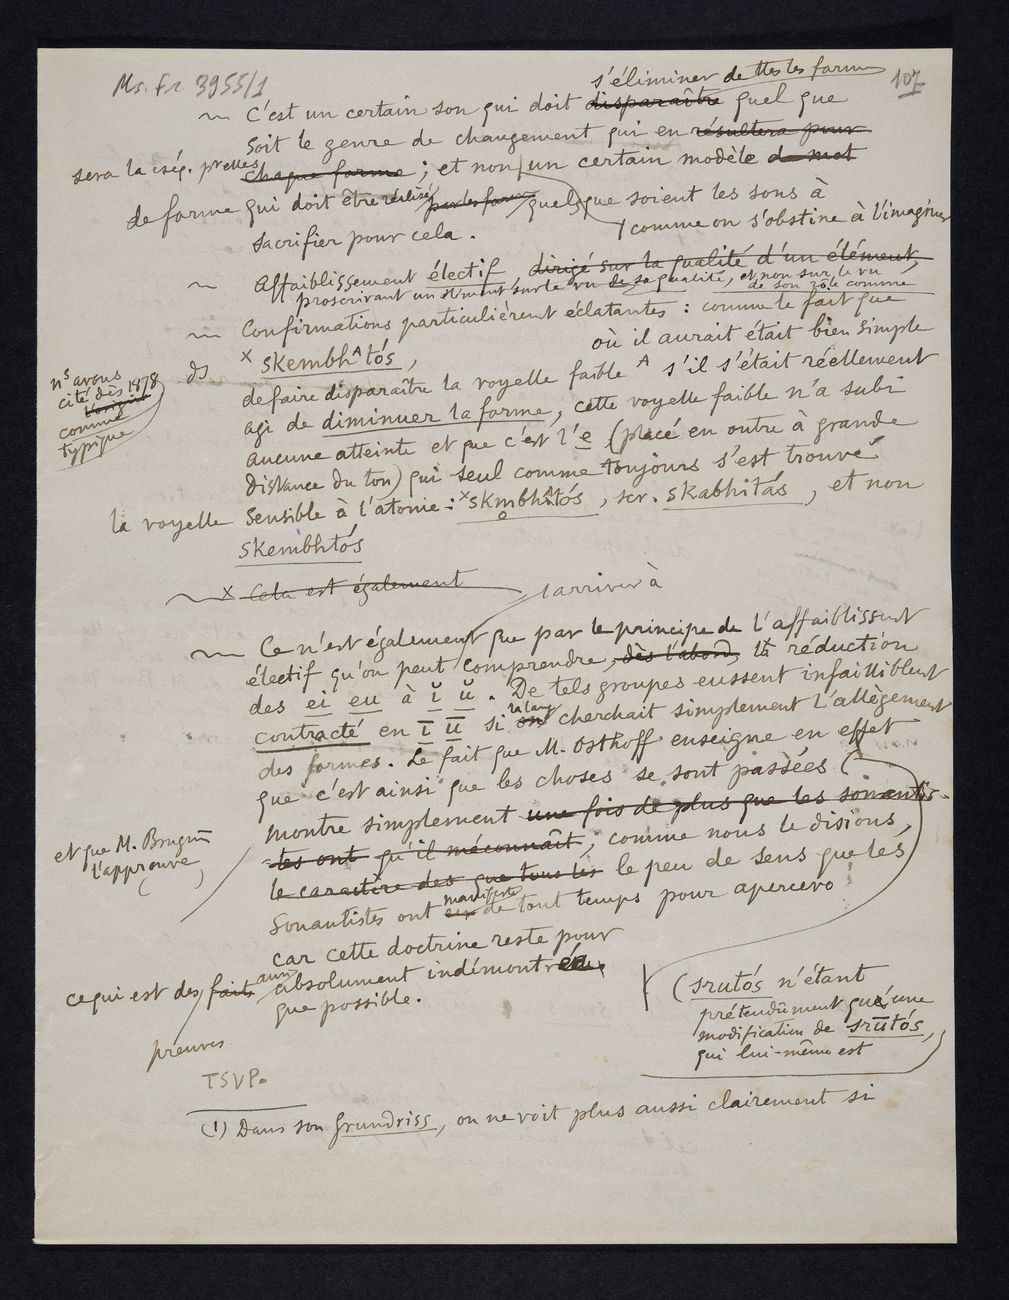 Ms. Fr. 3955/1
107
s'éliminer de ttes les formes
C'est un certain son qui doit disparaître quel que
soit le genre de changement qui en résultera pour
sera la
chaque forme ; et non un certain modèle de mot
de forme qui doit être réalisé par les formes quels que soient les sons à
comme on s'obstine à l'imaginer
sacrifier pour cela.
Affaiblissement électif, dirigé sur la qualité d'un élément,
proscrivant un élément sur le vu de sa qualité, et non sur le vu
de son rôle comme
Confirmations particulièrent éclatantes : comme le fait que
ds × skembhᴬtós,
où il aurait était bien simple
ns avons
cité dès 1878
comme
typique
de faire disparaître la voyelle faible ᴬ s'il s'était réellement
agi de diminuer la forme, cette voyelle faible n'a subi
aucune atteinte et que c'est l'e (placé en outre à grande
distance du ton) qui seul comme toujours s'est trouvé
la voyelle sensible à l'atonie : ×skm̥bhᴬtós, scr. skabhitás, et non
skembhtós
× Cela est également
arriver à
Ce n'est également que par le principe de l'affaiblissent
électif qu'on peut comprendre, dès l'abord, la réduction
des ei eu à ĭ ŭ. De tels groupes eussent infailliblent
la lang
contracté en ī ū si on cherchait simplement l'allègement
des formes. Le fait que M. Osthoff enseigne en effet
que c'est ainsi que les choses se sont passées (
montre simplement une fois de plus que les sonantis-
et que M. Brugm̄
l'approuve
tes ont qu'il méconnaît, comme nous le disions,
le caractère des que tous les le peu de sens que les
manifesté
sonantistes ont eux de tout temps pour apercevo
car cette doctrine reste pour
ce qui est des faits aussi absolument indémontrée
preuves
que possible.
(srutós n'étant
prétendûment qu'une
modification de srūtós,
qui lui-même est
TSVP.
(1) Dans son Grundriss, on ne voit plus aussi clairement si